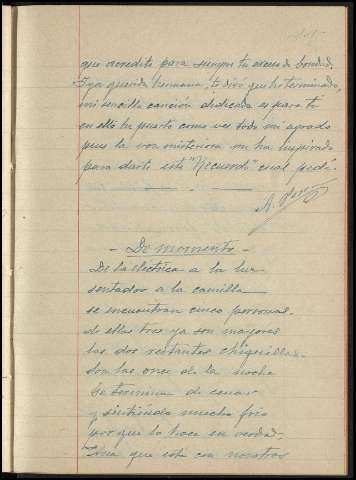 que acredite para siempre tu excesa bondad.
Y ya querida hermana, te diré que he terminado,
mi sencilla canción dedicada es para ti
en ella he puesto como ves todo mi agrado
pues la voz misteriosa me ha inspirado
para darte este "Recuerdo" cual pedí.
- De momento -
De la eléctrica a la luz
sentados a la camilla
se encuentran cinco personas.
de ellas tres ya son mayores
las dos restantes chiquillas.
Son las once de la noche
se termina de cenar
y sintiendo mucho frio
por que lo hace en verdad.
Una que está con nosotros